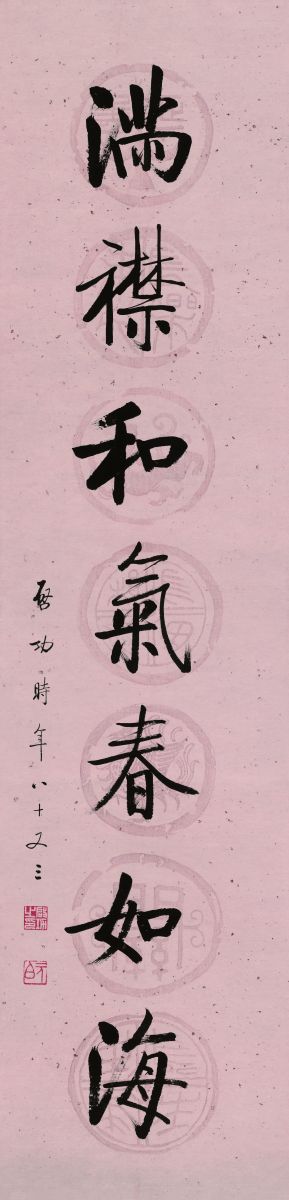 滿襟和氣春如海
啓功時年八十又三